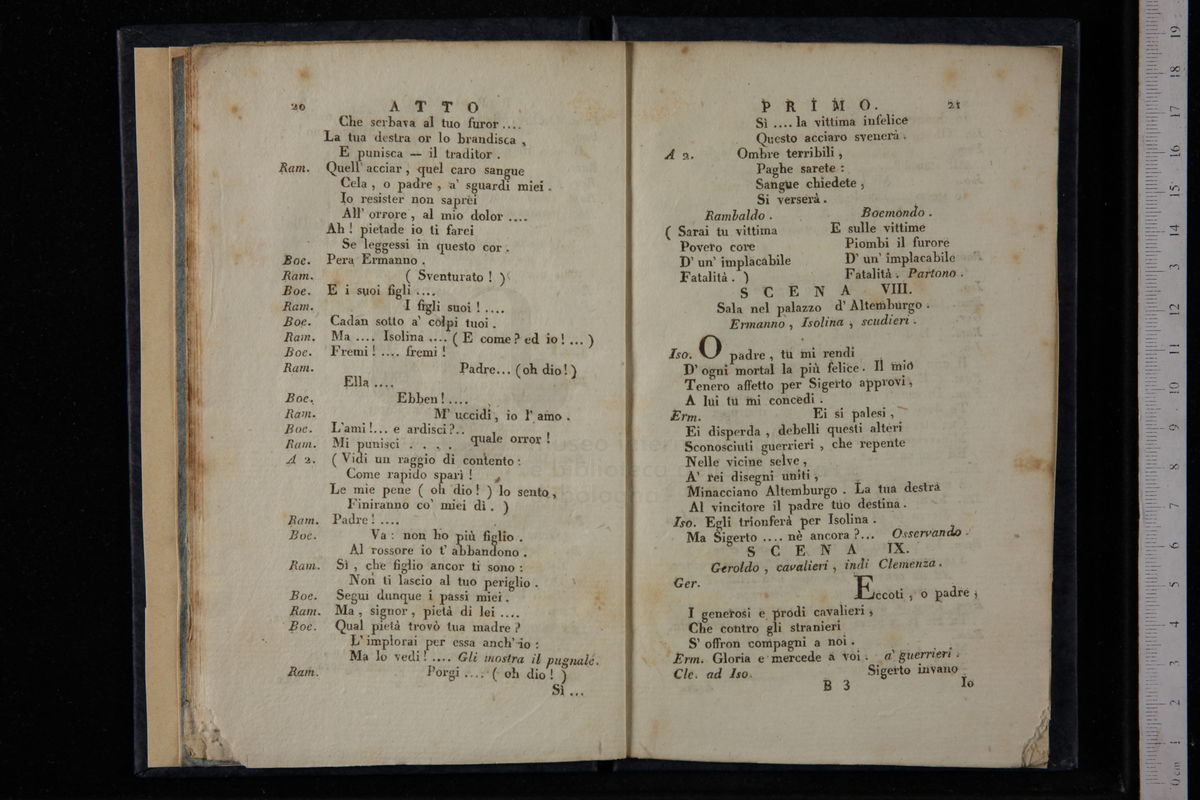 20 ATTO
Che serbava al tuo furor ....
La tua destra or lo brandisca ,
E punisca — il traditor .
Ram. Quell' acciar , quel caro sangue
Cela , o padre , a' sguardi miei .
Io resister non saprei
All' orrore , al mio dolor ....
Ah ! pietade io ti farei
Se leggessi in questo cor .
Boe. Pera Ermanno .
Ram. ( Sventurato ! )
Boe. E i suoi figli ....
Ram. I figli suoi ! ....
Boe. Cadan sotto a' colpi tuoi .
Ram. Ma .... Isolina .... ( E come ? ed io ! ... )
Boe. Fremi ! .... fremi !
Ram. Padre... ( oh dio ! )
Ella ....
Boe. Ebben ! ....
Ram. M' uccidi , io l' amo .
Boe. L'ami !... e ardisci ?..
Ram. Mi punisci . . . . quale orror !
A 2. ( Vidi un raggio di contento :
Come rapido sparì !
Le mie pene ( oh dio ! ) lo sento ,
Finiranno co' miei dì . )
Ram. Padre ! ....
Boe. Va : non ho più figlio .
Al rossore io t' abbandono .
Ram. Sì , che figlio ancor ti sono :
Non ti lascio al tuo periglio .
Boe. Segui dunque i passi miei .
Ram. Ma , signor , pietà di lei ....
Boe. Qual pietà trovò tua madre ?
L' implorai per essa anch' io :
Ma lo vedi ! .... Gli mostra il pugnale.
Ram. Porgi .... ( oh dio ! )
Sì ...
PRIMO. 21
Sì .... la vittima infelice
Questo acciaro svenerà .
A 2. Ombre terribili ,
Paghe sarete :
Sangue chiedete ,
Si verserà .
Rambaldo . Boemondo .
( Sarai tu vittima E sulle vittime
Povero core Piombi il furore
D' un' implacabile D' un' implacabile
Fatalità . ) Fatalità . Partono .
SCENA VIII.
Sala nel palazzo d' Altemburgo .
Ermanno , Isolina , scudieri .
Iso. O padre , tu mi rendi
D' ogni mortal la più felice . Il mio
Tenero affetto per Sigerto approvi ,
A lui tu mi concedi .
Erm. Ei si palesi ,
Ei disperda , debelli questi alteri
Sconosciuti guerrieri , che repente
Nelle vicine selve ,
A' rei disegni uniti ,
Minacciano Altemburgo . La tua destra
Al vincitore il padre tuo destina .
Iso. Egli trionferà per Isolina .
Ma Sigerto .... nè ancora ?... Osservando .
SCENA IX.
Geroldo , cavalieri , indi Clemenza .
Ger. Eccoti , o padre ,
I generosi e prodi cavalieri ,
Che contro gli stranieri
S' offron compagni a noi .
Erm. Gloria e mercede a voi . a' guerrieri .
Cle. ad Iso. Sigerto invano
B 3 Io